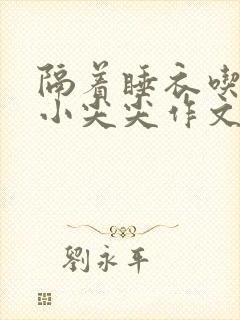 隔着睡衣喫
小尖尖作文
劉永平